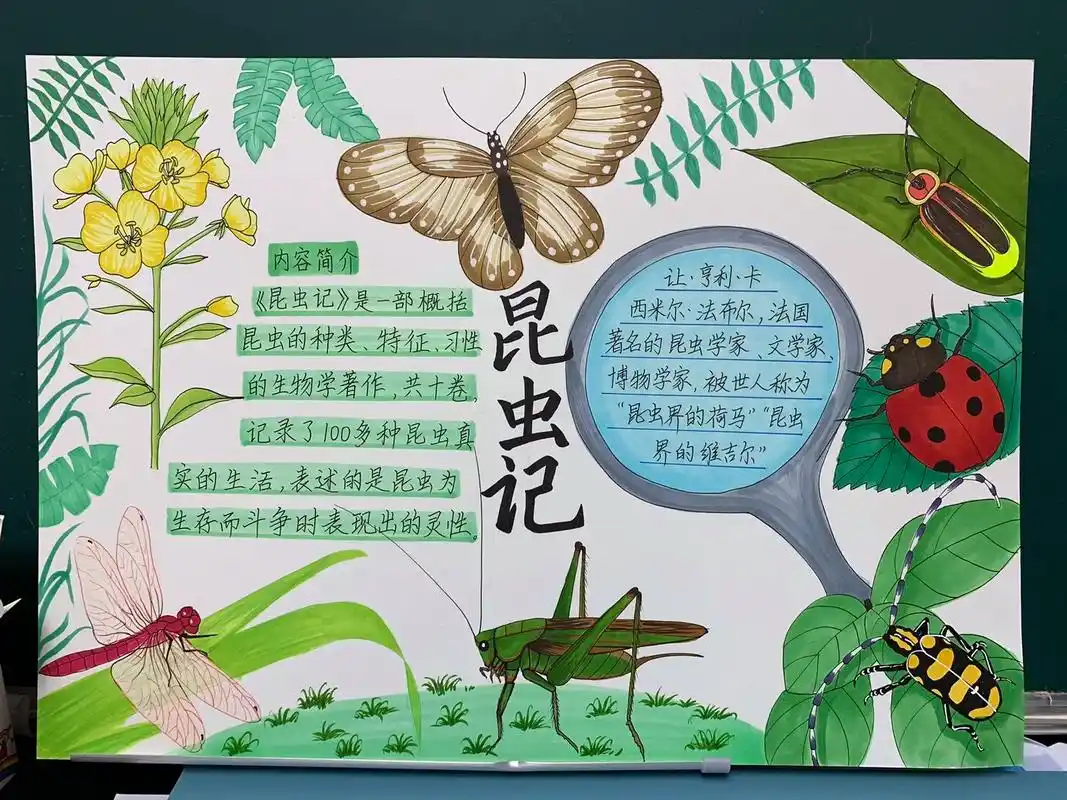 昆虫记
内容简介
《昆虫记》是一部概括
昆虫的种类、特征、习性
的生物学著作，共十卷，
记录了100多种昆虫真
实的生活，表述的是昆虫为
生存而斗争时表现出的灵性。
让·亨利·卡
西米尔·法布尔，法国
著名的昆虫学家、文学家、
博物学家，被世人称为
“昆虫界的荷马”“昆虫
界的维吉尔”